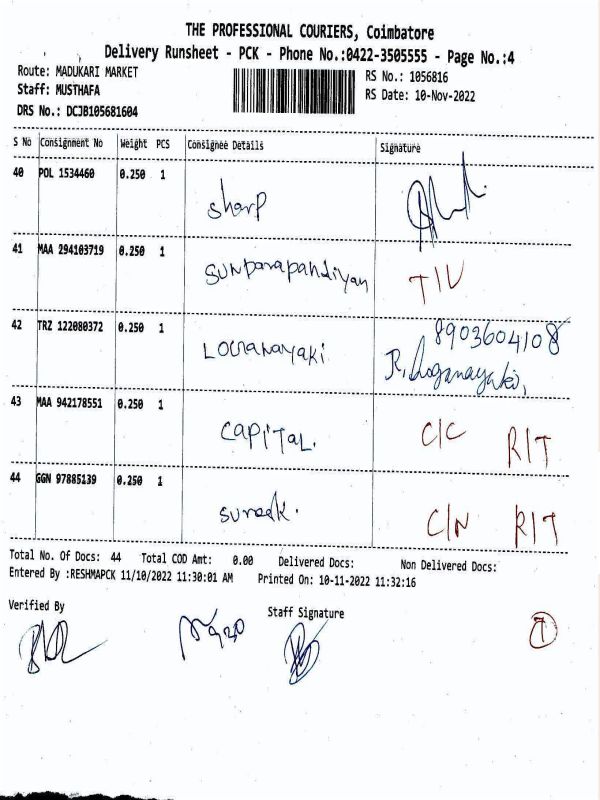 THE PROFESSIONAL COURIERS, Coimbatore
Delivery Runsheet - PCK - Phone No.:0422-3505555 - Page No.:4
Route: MADUKARI MARKET
RS No.: 1056816
Staff: MUSTHAFA
RS Date: 10-Nov-2022
DRS No.: DCJB105681604
S No Consignment No Weight PCS Consignee Details Signature
40 POL 1534460 0.250 1 sharp
41 MAA 294103719 0.250 1 sundarapandiyan T/U
42 TRZ 122080372 0.250 1 Loganayaki 8903604108
R. Loganayaki,
43 MAA 942178551 0.250 1 capital. C/C R/T
44 GGN 97885139 0.250 1 C/N R/T
Total No. Of Docs: 44 Total COD Amt: 0.00 Delivered Docs: Non Delivered Docs:
Entered By :RESHMAPCK 11/10/2022 11:30:01 AM Printed On: 10-11-2022 11:32:16
Verified By Staff Signature